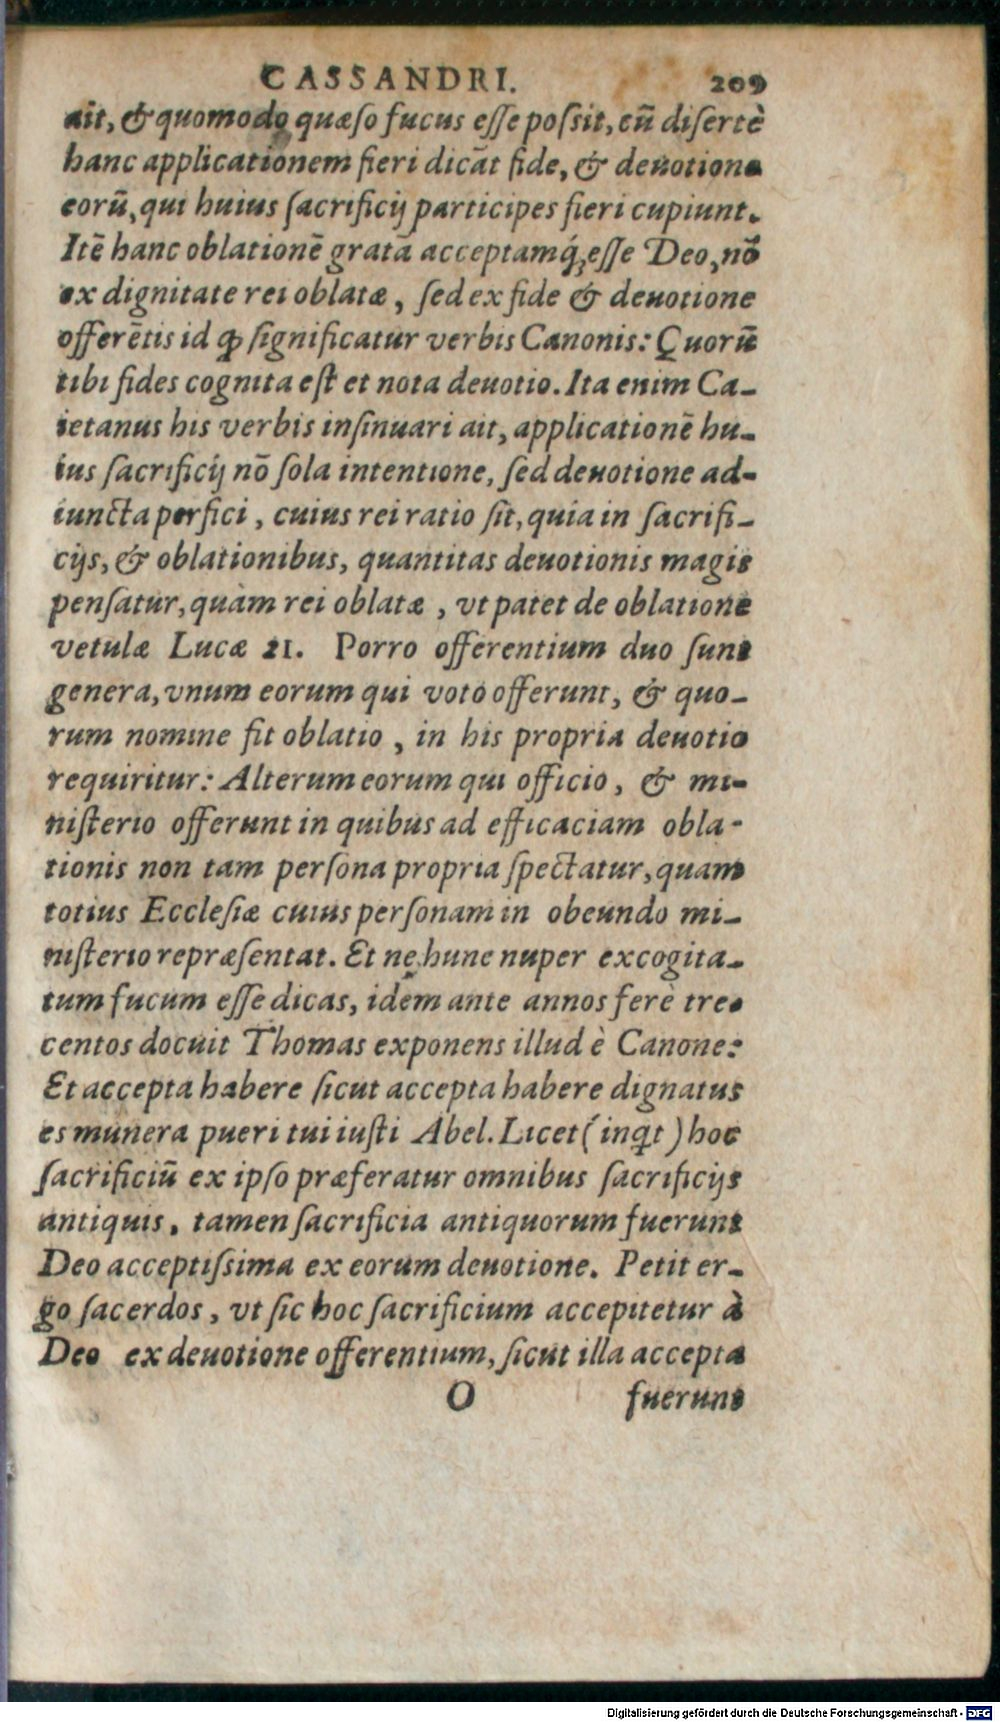 CASSANDRI. 209
ait, & quomodo quæso fucus esse possit, cū disertè
hanc applicationem fieri dicāt fide, & deuotione
eorū, qui huius sacrificij participes fieri cupiunt.
Itē hanc oblationē gratā acceptamq́; esse Deo, nō
ex dignitate rei oblatæ, sed ex fide & deuotione
offerētis id ꝙ significatur verbis Canonis: Quorū
tibi fides cognita est et nota deuotio. Ita enim Ca-
ietanus his verbis insinuari ait, applicationē hu-
ius sacrificij nō sola intentione, sed deuotione ad-
iuncta perfici, cuius rei ratio sit, quia in sacrifi-
cijs, & oblationibus, quantitas deuotionis magis
pensatur, quàm rei oblatæ, vt patet de oblatione
vetulæ Lucæ 21. Porro offerentium duo sunt
genera, vnum eorum qui voto offerunt, & quo-
rum nomine fit oblatio, in his propria deuotio
requiritur: Alterum eorum qui officio, & mi-
nisterio offerunt in quibus ad efficaciam obla-
tionis non tam persona propria spectatur, quam
totius Ecclesiæ cuius personam in obeundo mi-
nisterio repræsentat. Et ne hunc nuper excogita-
tum fucum esse dicas, idem ante annos ferè tre-
centos docuit Thomas exponens illud è Canone:
Et accepta habere sicut accepta habere dignatus
es munera pueri tui iusti Abel. Licet (inq̃t) hoc
sacrificiū ex ipso præferatur omnibus sacrificijs
antiquis, tamen sacrificia antiquorum fuerunt
Deo acceptissima ex eorum deuotione. Petit er-
go sacerdos, vt sic hoc sacrificium accepitetur à
Deo ex deuotione offerentium, sicut illa accepta
O fuerunt
Digitalisierung gefördert durch die Deutsche Forschungsgemeinschaft - DFG